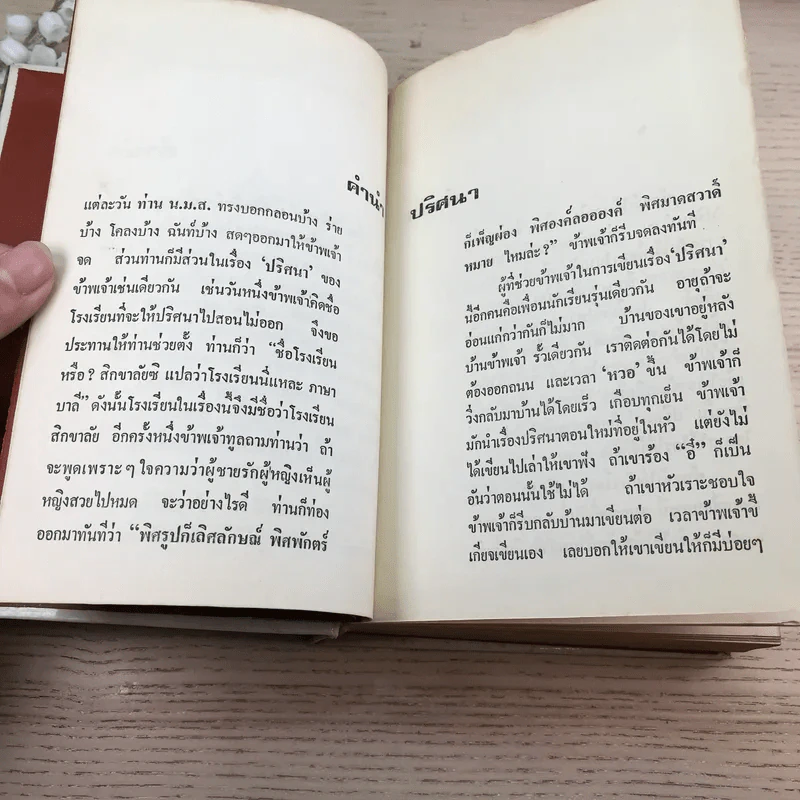 คำนำ
แต่ละวัน ท่าน น.ม.ส. ทรงบอกกลอนบ้าง ร่าย
บ้าง โคลงบ้าง ฉันท์บ้าง สดๆออกมาให้ข้าพเจ้า
จด ส่วนท่านก็มีส่วนในเรื่อง ‘ปริศนา’ ของ
ข้าพเจ้าเช่นเดียวกัน เช่นวันหนึ่งข้าพเจ้าคิดชื่อ
โรงเรียนที่จะให้ปริศนาไปสอนไม่ออก จึงขอ
ประทานให้ท่านช่วยตั้ง ท่านก็ว่า “ชื่อโรงเรียน
หรือ? สิกขาลัยซิ แปลว่าโรงเรียนนี่แหละ ภาษา
บาลี” ดังนั้นโรงเรียนในเรื่องนี้จึงมีชื่อว่าโรงเรียน
สิกขาลัย อีกครั้งหนึ่งข้าพเจ้าทูลถามท่านว่า ถ้า
จะพูดเพราะๆใจความว่าผู้ชายรักผู้หญิงเห็นผู้
หญิงสวยไปหมด จะว่าอย่างไรดี ท่านก็ท่อง
ออกมาทันทีว่า “พิศรูปก็เลิศลักษณ์ พิศพักตร์
ปริศนา
ก็เพ็ญผ่อง พิศองค์ลอออองค์ พิศมาดสวาดิ์
หมาย ไหมล่ะ?” ข้าพเจ้าก็รีบจดลงทันที
ผู้ที่ช่วยข้าพเจ้าในการเขียนเรื่อง ‘ปริศนา’
นี้อีกคนคือเพื่อนนักเรียนรุ่นเดียวกัน อายุถ้าจะ
อ่อนแก่กว่ากันก็ไม่มาก บ้านของเขาอยู่หลัง
บ้านข้าพเจ้า รั้วเดียวกัน เราติดต่อกันได้โดยไม่
ต้องออกถนน และเวลา ‘หวอ’ ขึ้น ข้าพเจ้าก็
วิ่งกลับมาบ้านได้โดยเร็ว เกือบทุกเย็น ข้าพเจ้า
มักนำเรื่องปริศนาตอนใหม่ที่อยู่ในหัว แต่ยังไม่
ได้เขียนไปเล่าให้เขาฟัง ถ้าเขาร้อง “อี๋” ก็เป็น
อันว่าตอนนั้นใช้ไม่ได้ ถ้าเขาหัวเราะชอบใจ
ข้าพเจ้าก็รีบกลับบ้านมาเขียนต่อ เวลาข้าพเจ้าขี้
เกียจเขียนเอง เลยบอกให้เขาเขียนให้ก็มีบ่อยๆ